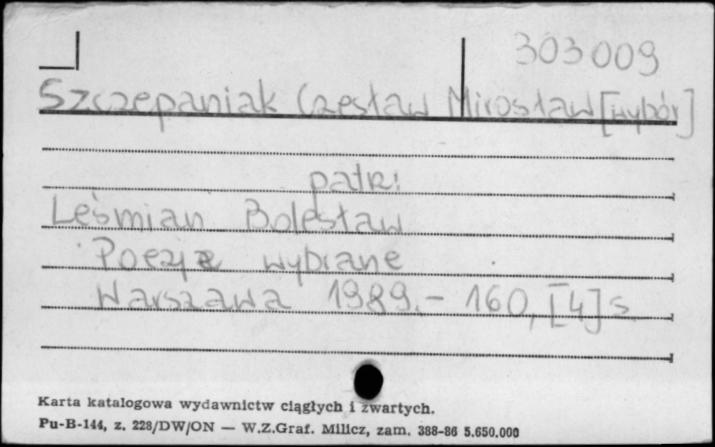 303009
Szczepaniak Czesław Mirosław [wybór]
patrz:
Leśmian Bolesław
Poezje wybrane
Warszawa 1989.- 160, [4] s.
Karta katalogowa wydawnictw ciągłych i zwartych.
Pu-B-144, z. 228/DW/ON — W.Z.Graf. Milicz, zam. 388-86 5.650.000